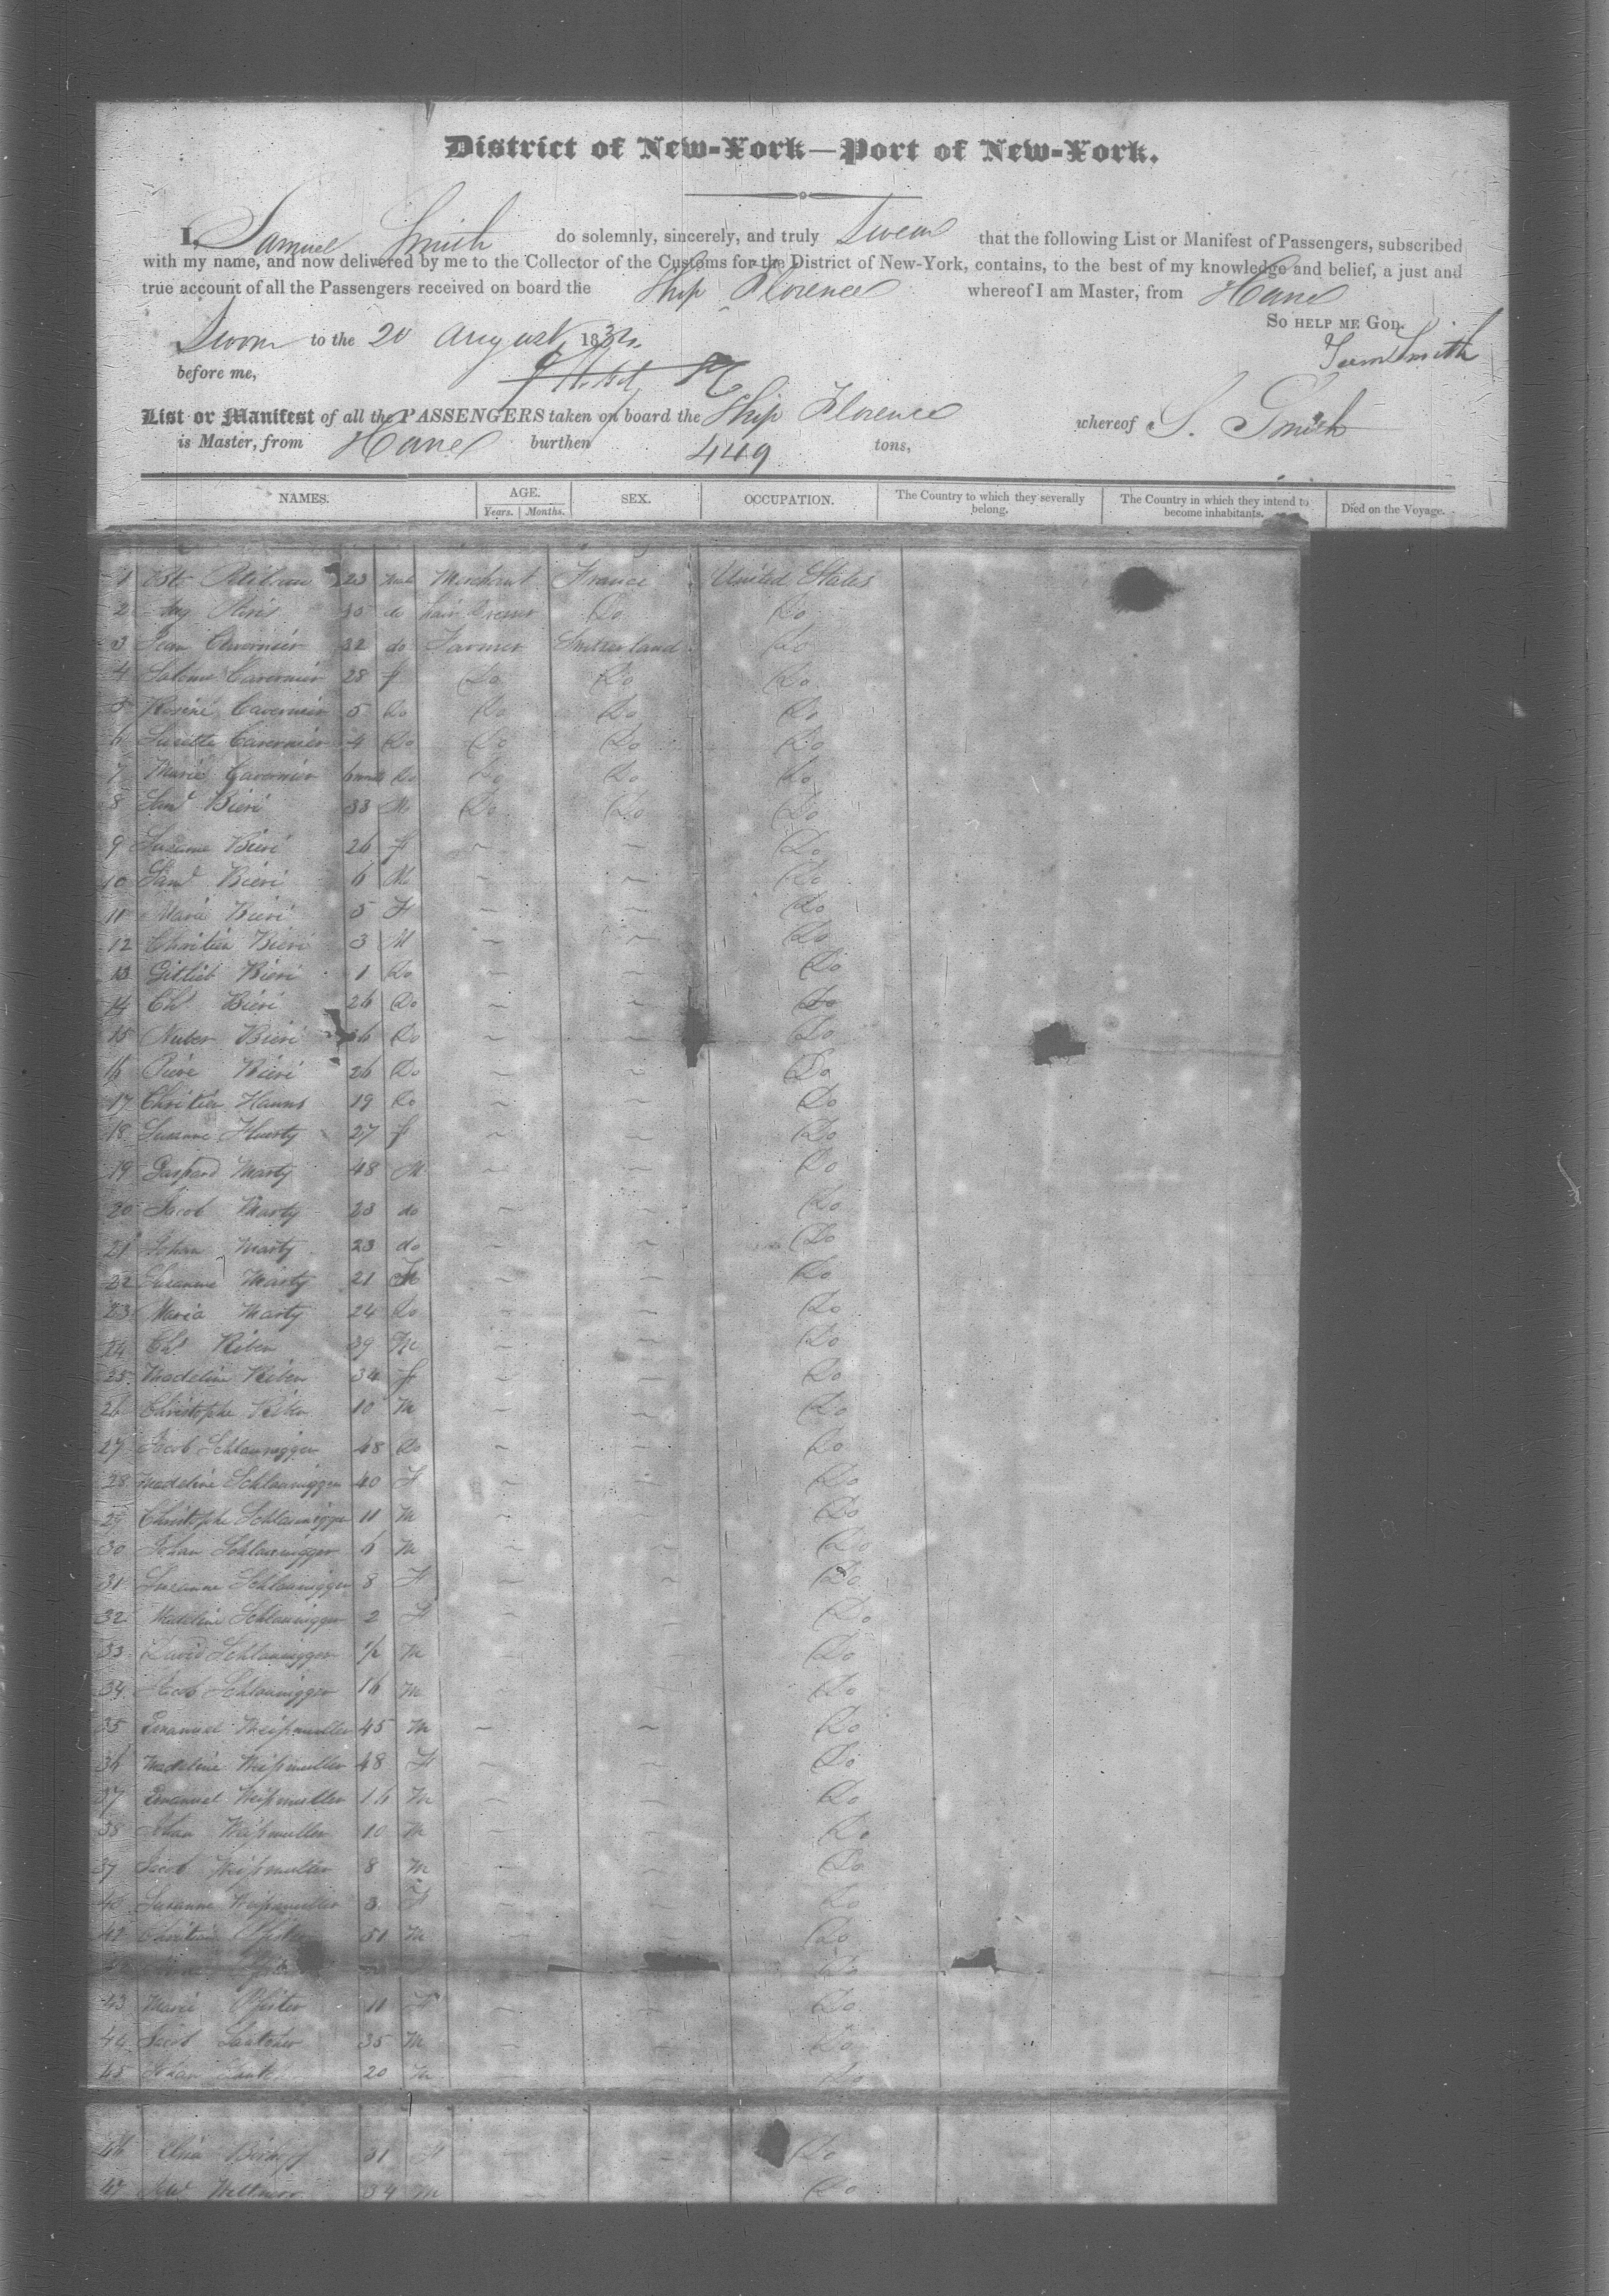 District of New-York—Port of New-York.
I, Samuel Smith do solemnly, sincerely, and truly Swear that the following List or Manifest of Passengers, subscribed
with my name, and now delivered by me to the Collector of the Customs for the District of New-York, contains, to the best of my knowledge and belief, a just and
true account of all the Passengers received on board the Ship Florence whereof I am Master, from Havre
So help me God.
Sworn to the 20 August 183
Sam Smith
before me,
List or Manifest of all the PASSENGERS taken on board the Ship Florence whereof S. Smith
is Master, from Havre burthen 449 tons,
NAMES. AGE. Years. Months. SEX. OCCUPATION. The Country to which they severally belong. The Country in which they intend to become inhabitants. Died on the Voyage.
1 23 Male Merchant France United States
2 30 do hair Dresser Do Do
3 Jean Cavernier 32 do Farmer Switzerland Do
4 Salome Cavernier 28 f Do Do Do
5 Rosine Cavernier 5 Do Do Do Do
6 Susette Cavernier 4 Do Do Do Do
7 Marie Cavernier 6 mnth Do Do Do Do
8 Saml Bieri 33 M Do Do Do
9 Susanne Bieri 26 f ~ ~ Do
10 Saml Bieri 6 M ~ ~ Do
11 Marie Bieri 5 F ~ ~ Do
12 Christien Bieri 3 M ~ ~ Do
13 Gitlieb Bieri 1 Do ~ ~ Do
14 Chs Bieri 26 Do ~ ~ Do
15 Bieri 36 Do ~ ~ Do
16 Piere Bieri 26 Do ~ ~ Do
17 Christien Hanns 19 Do ~ ~ Do
18 Susanne 27 f ~ ~ Do
19 Gaspard Marty 48 M ~ ~ Do
20 Jacob Marty 23 do ~ ~ Do
21 Johan Marty 23 do ~ ~ Do
22 Susanne Marty 21 F ~ ~ Do
23 Maria Marty 24 Do ~ ~ Do
24 Chs Riben 39 M ~ ~ Do
25 Madeline Riben 34 f ~ ~ Do
26 Christophe Riben 10 M ~ ~ Do
27 Jacob Schlaunigger 48 Do ~ ~ Do
28 Madeline Schlaunigger 40 F ~ ~ Do
29 Christophe Schlaunigger 11 M ~ ~ Do
30 Johan Schlaunigger 6 M ~ ~ Do
31 Susanne Schlaunigger 8 F ~ ~ Do
32 Madeline Schlaunigger 2 F ~ ~ Do
33 David Schlaunigger 1/2 M ~ ~ Do
34 Jacob Schlaunigger 16 M ~ ~ Do
35 Emanuel Weissmuller 45 M ~ ~ Do
36 Madeline Weissmuller 48 F ~ ~ Do
37 Emanuel Weissmuller 16 M ~ ~ Do
38 Johan Weissmuller 10 M ~ ~ Do
39 Jacob Weissmuller 8 M ~ ~ Do
40 Susanne Weissmuller 3 F ~ ~ Do
42 Christian Pfister 51 M ~ ~ Do
Do
43 Marie Pfister 11 F ~ ~ Do
44 Jacob 35 M ~ ~ Do
45 Johan 20 M ~ ~ Do
46 31 F ~ ~ Do
47 34 M ~ Do